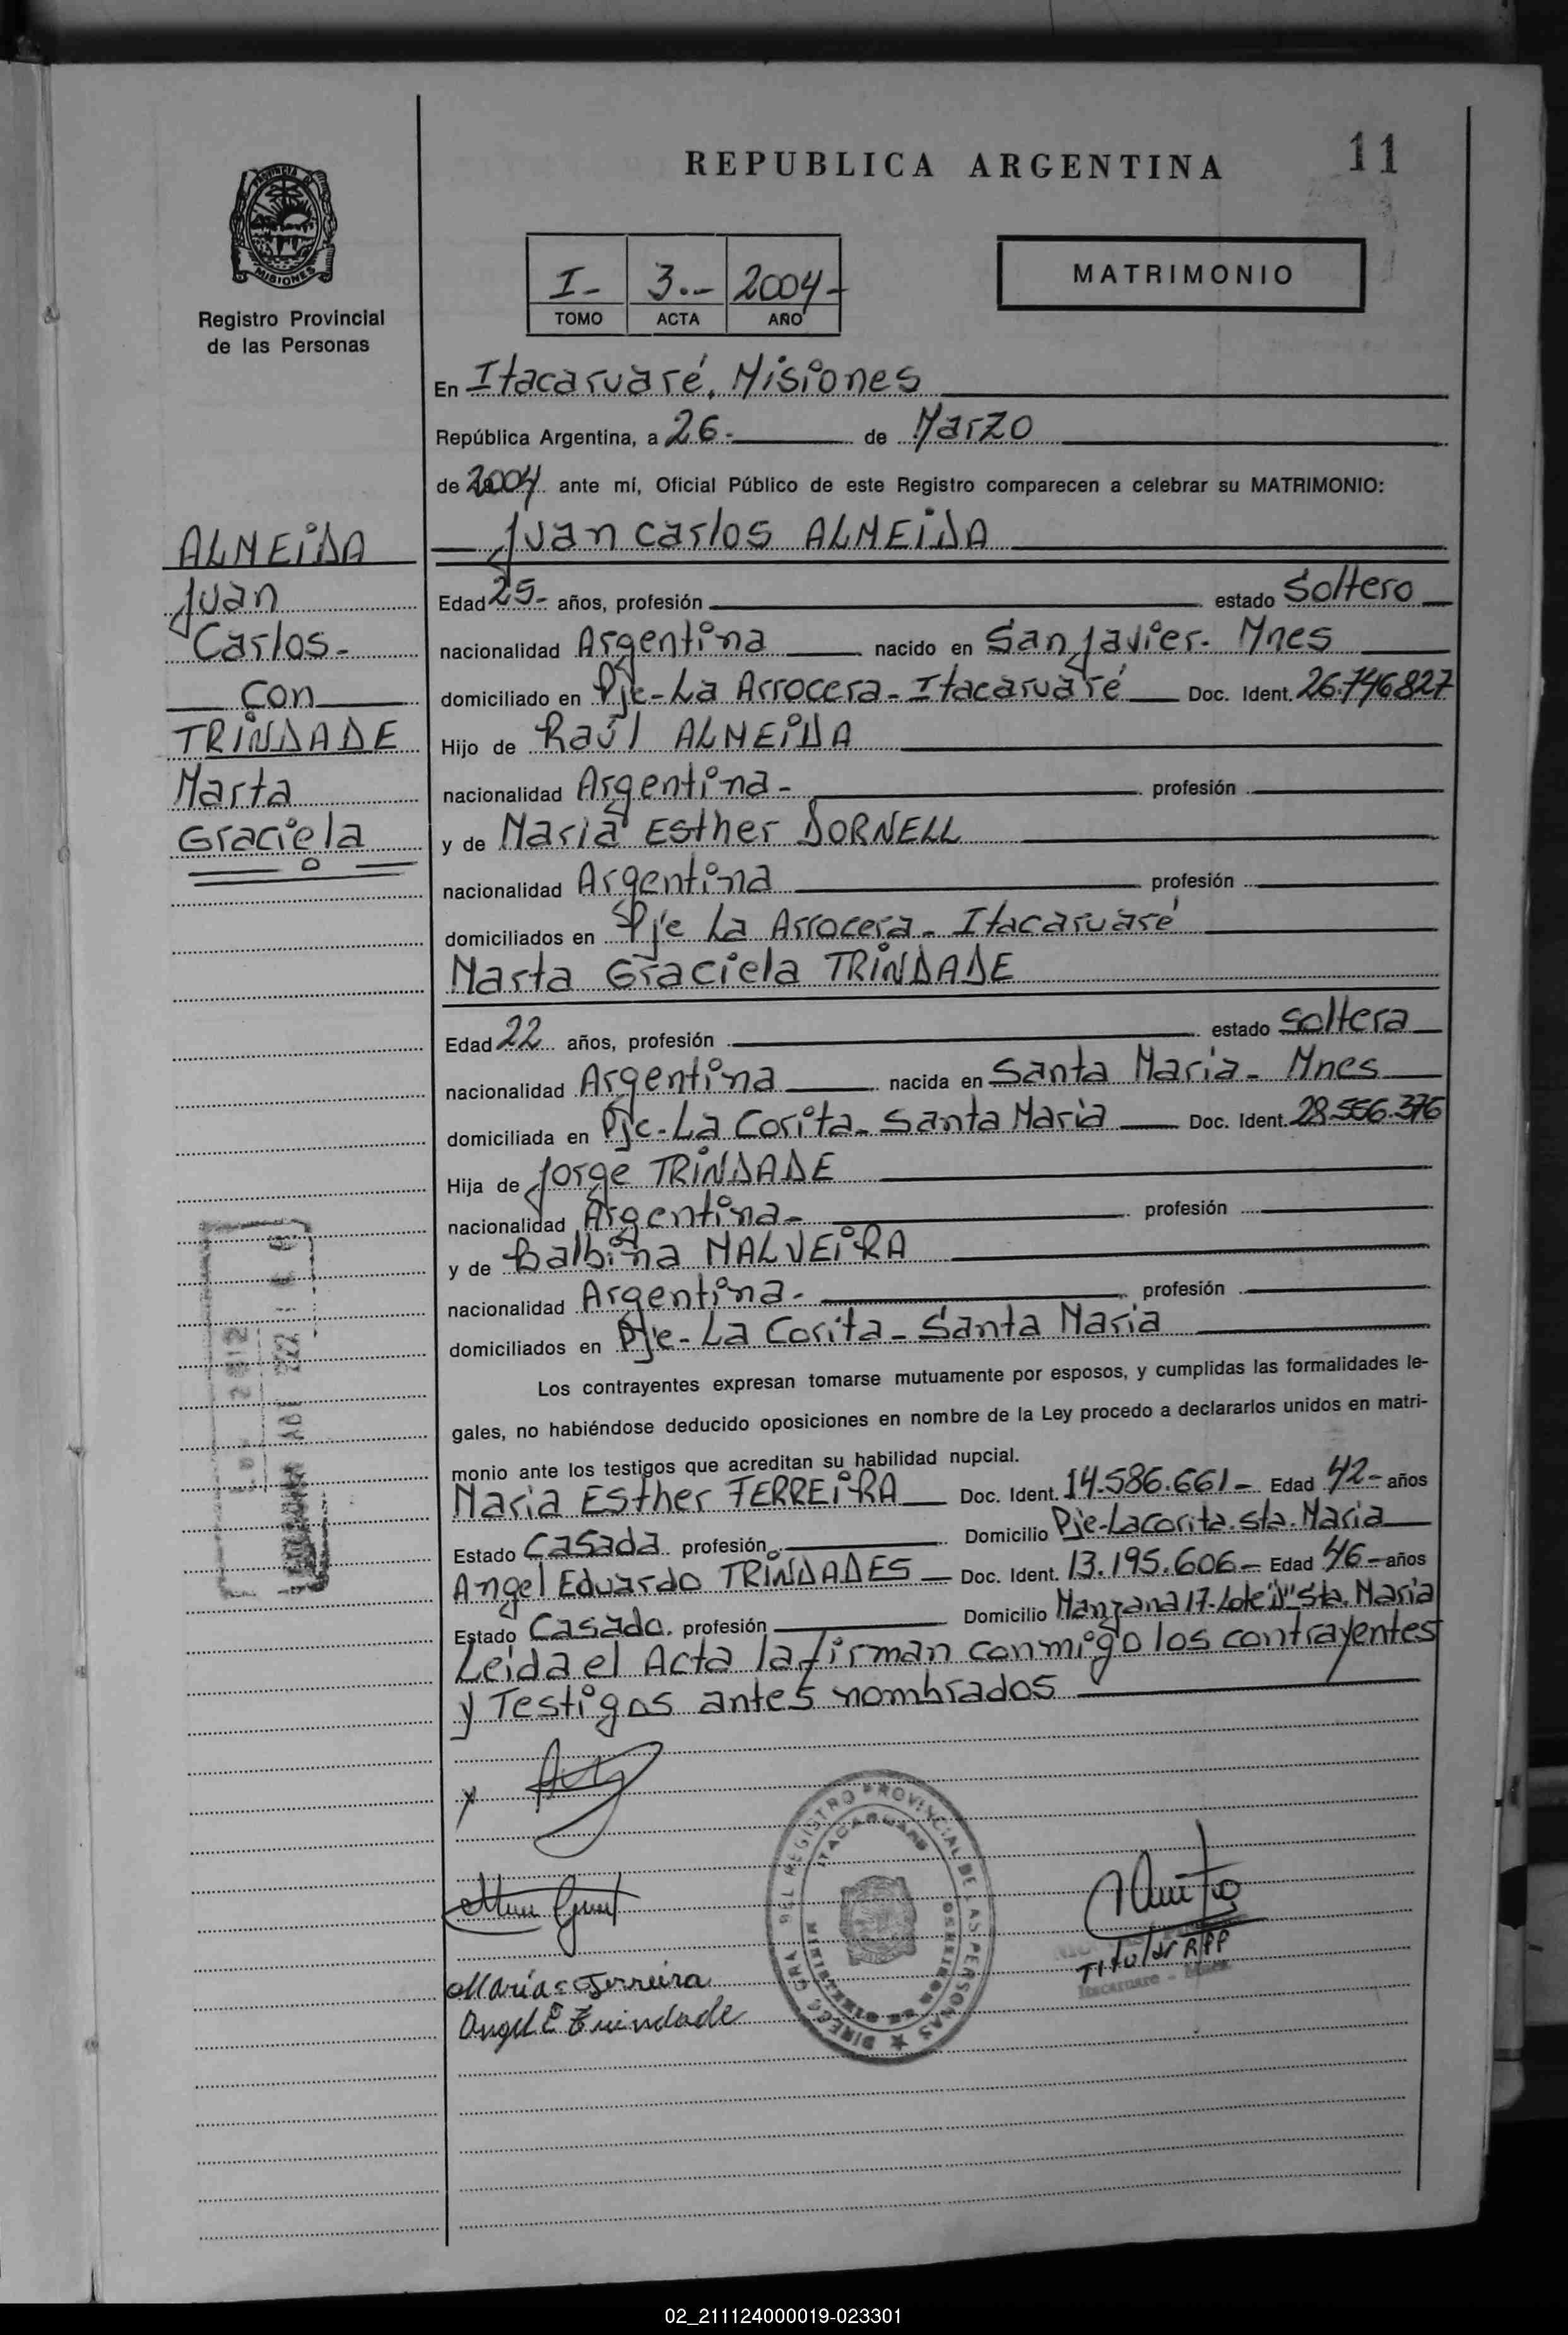 REPUBLICA ARGENTINA
11
MISIONES
Registro Provincial
de las Personas
I- 3.- 2004-
TOMO ACTA AÑO
MATRIMONIO
En Itacaruaré, Misiones
República Argentina, a 26- de Marzo
de 2004 ante mí, Oficial Público de este Registro comparecen a celebrar su MATRIMONIO:
ALMEIDA
Juan
Carlos-
con
TRINDADE
Marta
Graciela
Juan Carlos ALMEIDA
Edad 25- años, profesión estado Soltero
nacionalidad Argentina nacido en San Javier- Mnes
domiciliado en Pje-La Arrocera-Itacaruaré Doc. Ident. 26.746.827
Hijo de Raúl ALMEIDA
nacionalidad Argentina- profesión
y de María Esther DORNELL
nacionalidad Argentina profesión
domiciliados en Pje La Arrocera- Itacaruaré
Marta Graciela TRINDADE
Edad 22 años, profesión estado soltera
nacionalidad Argentina nacida en Santa María- Mnes
domiciliada en Pje-La Corita-Santa María Doc. Ident. 28.556.376
Hija de Jorge TRINDADE
nacionalidad Argentina- profesión
y de Balbina MALVEIRA
nacionalidad Argentina- profesión
domiciliados en Pje-La Corita-Santa María
Los contrayentes expresan tomarse mutuamente por esposos, y cumplidas las formalidades le-
gales, no habiéndose deducido oposiciones en nombre de la Ley procedo a declararlos unidos en matri-
monio ante los testigos que acreditan su habilidad nupcial.
María Esther FERREIRA Doc. Ident. 14.586.661- Edad 42- años
Estado Casada profesión Domicilio Pje-La Corita.Sta.María
Angel Eduardo TRINDADES Doc. Ident. 13.195.606- Edad 46- años
Estado Casado. profesión Domicilio Manzana 17-Lote Sta. María
Leída el Acta la firman conmigo los contrayentes
y Testigos antes nombrados
DIRECC GRAL DEL REGISTRO PROVINCIAL DE LAS PERSONAS
ITACARUARE
MINISTERIO DE GOBIERNO
María Ferreira
Angel E Trindade
Titular RPP
02_211124000019-023301